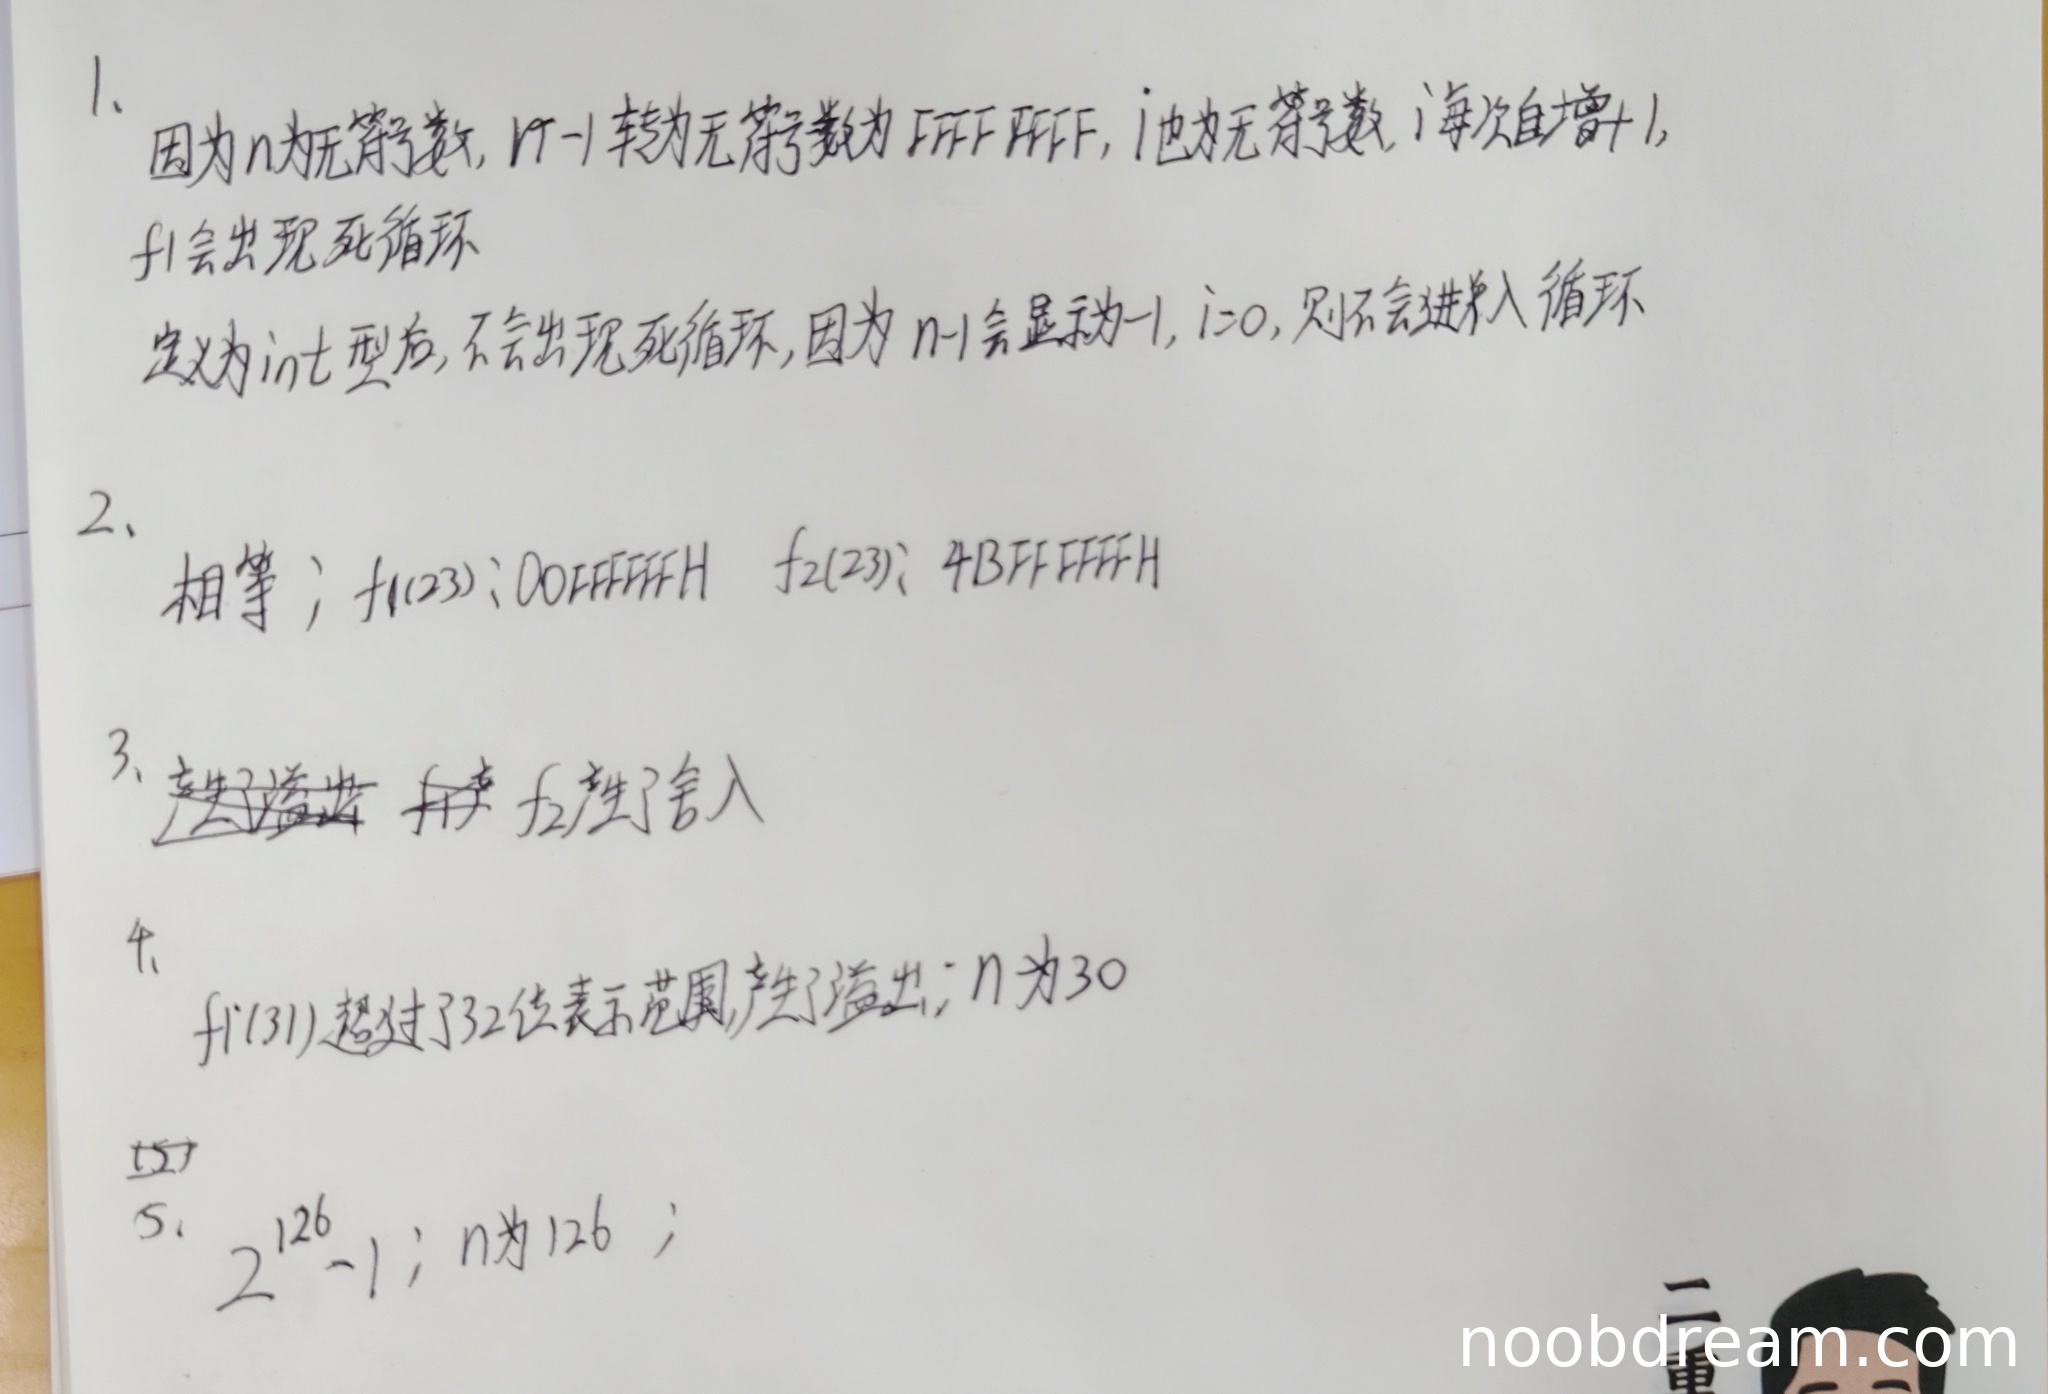 1、
因为n为无符号数, n-1转为无符号数为FFFF FFFF, i也为无符号数, i每次自增+1,
f1会出现死循环
定义为int型后, 不会出现死循环, 因为n-1会显示为-1, i=0, 则不会进入循环
2、
相等; f1(23): 00FFFFFFH f2(23): 4BFFFFFFH
3、
f2产生了舍入
4、
f1(31)超过了32位表示范围,产生了溢出; n为30
5、
2^126-1; n为126;
二
重
noobdream.com